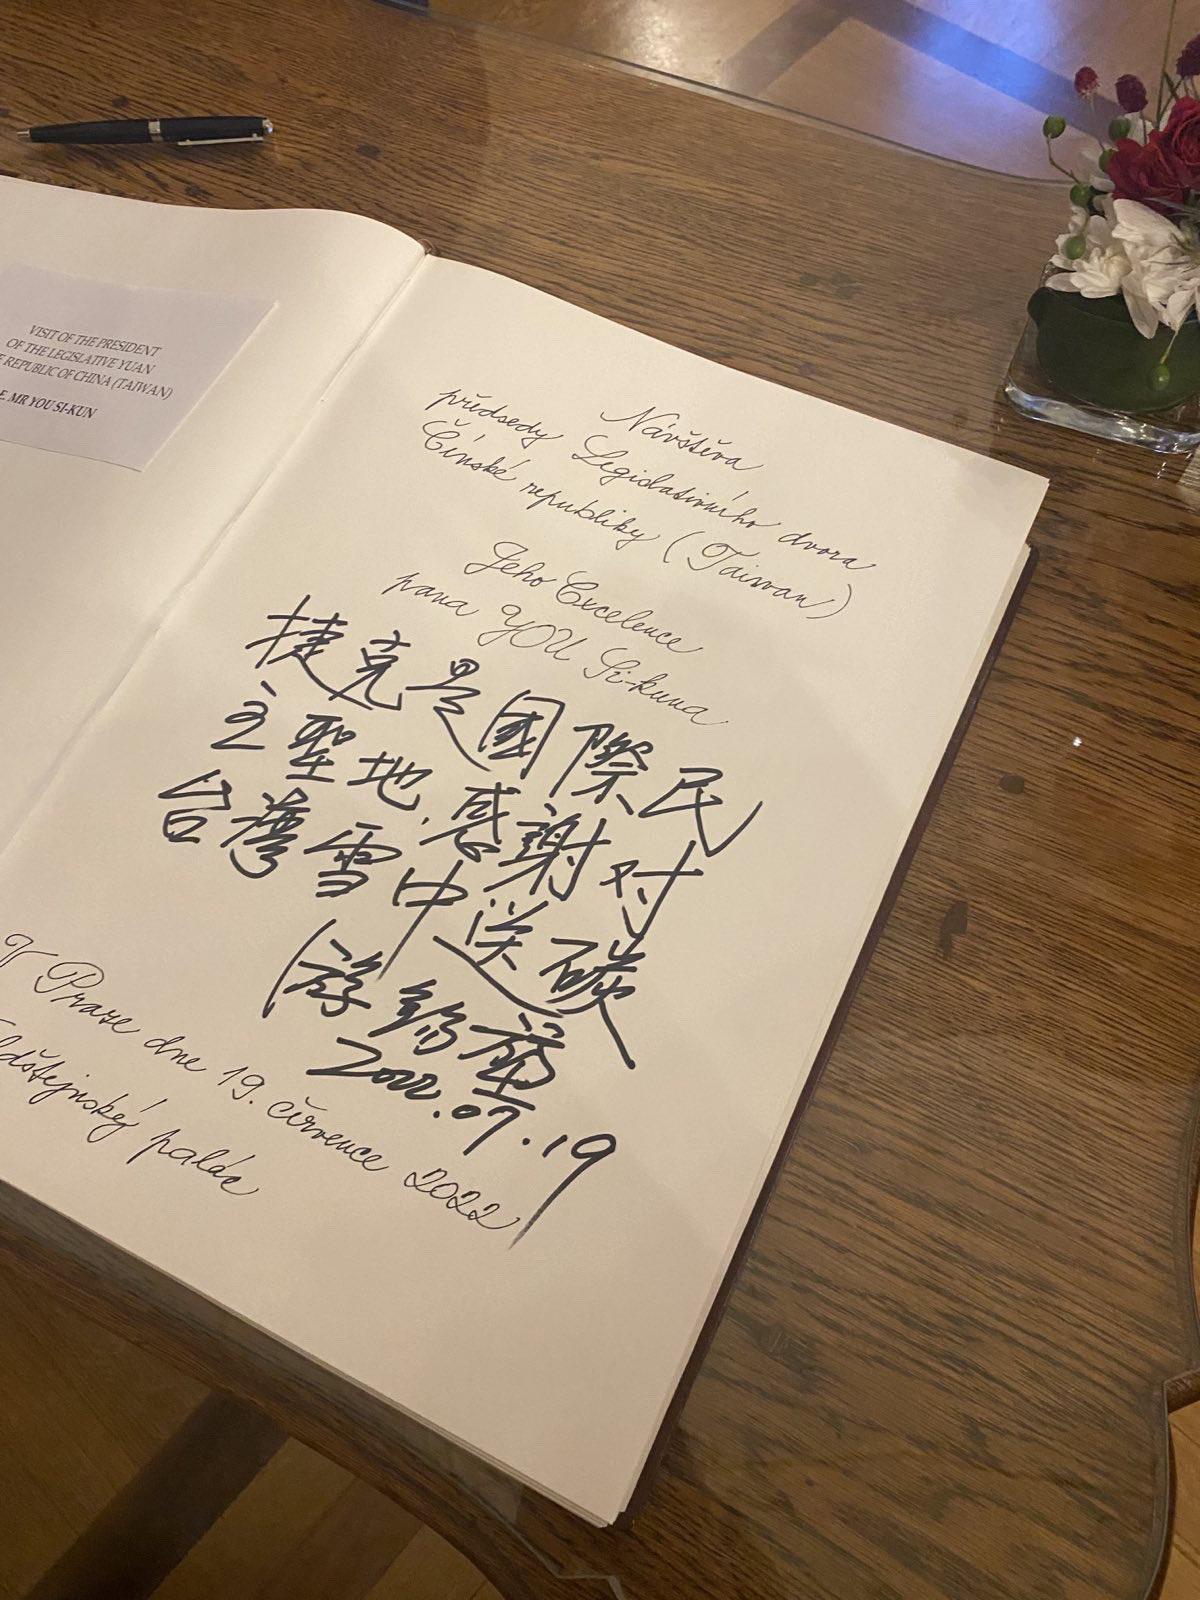 VISIT OF THE PRESIDENT
OF THE LEGISLATIVE YUAN
REPUBLIC OF CHINA (TAIWAN)
E. MR YOU SI-KUN
Návštěva
předsedy Legislativního dvora
Čínské republiky (Taiwan)
Jeho Excelence
pana YOU Si-kuna
捷克是國際民
主聖地.感謝对
台灣雪中送碳
游錫堃
2022.07.19
V Praze dne 19. července 2022
ldštejnský palác